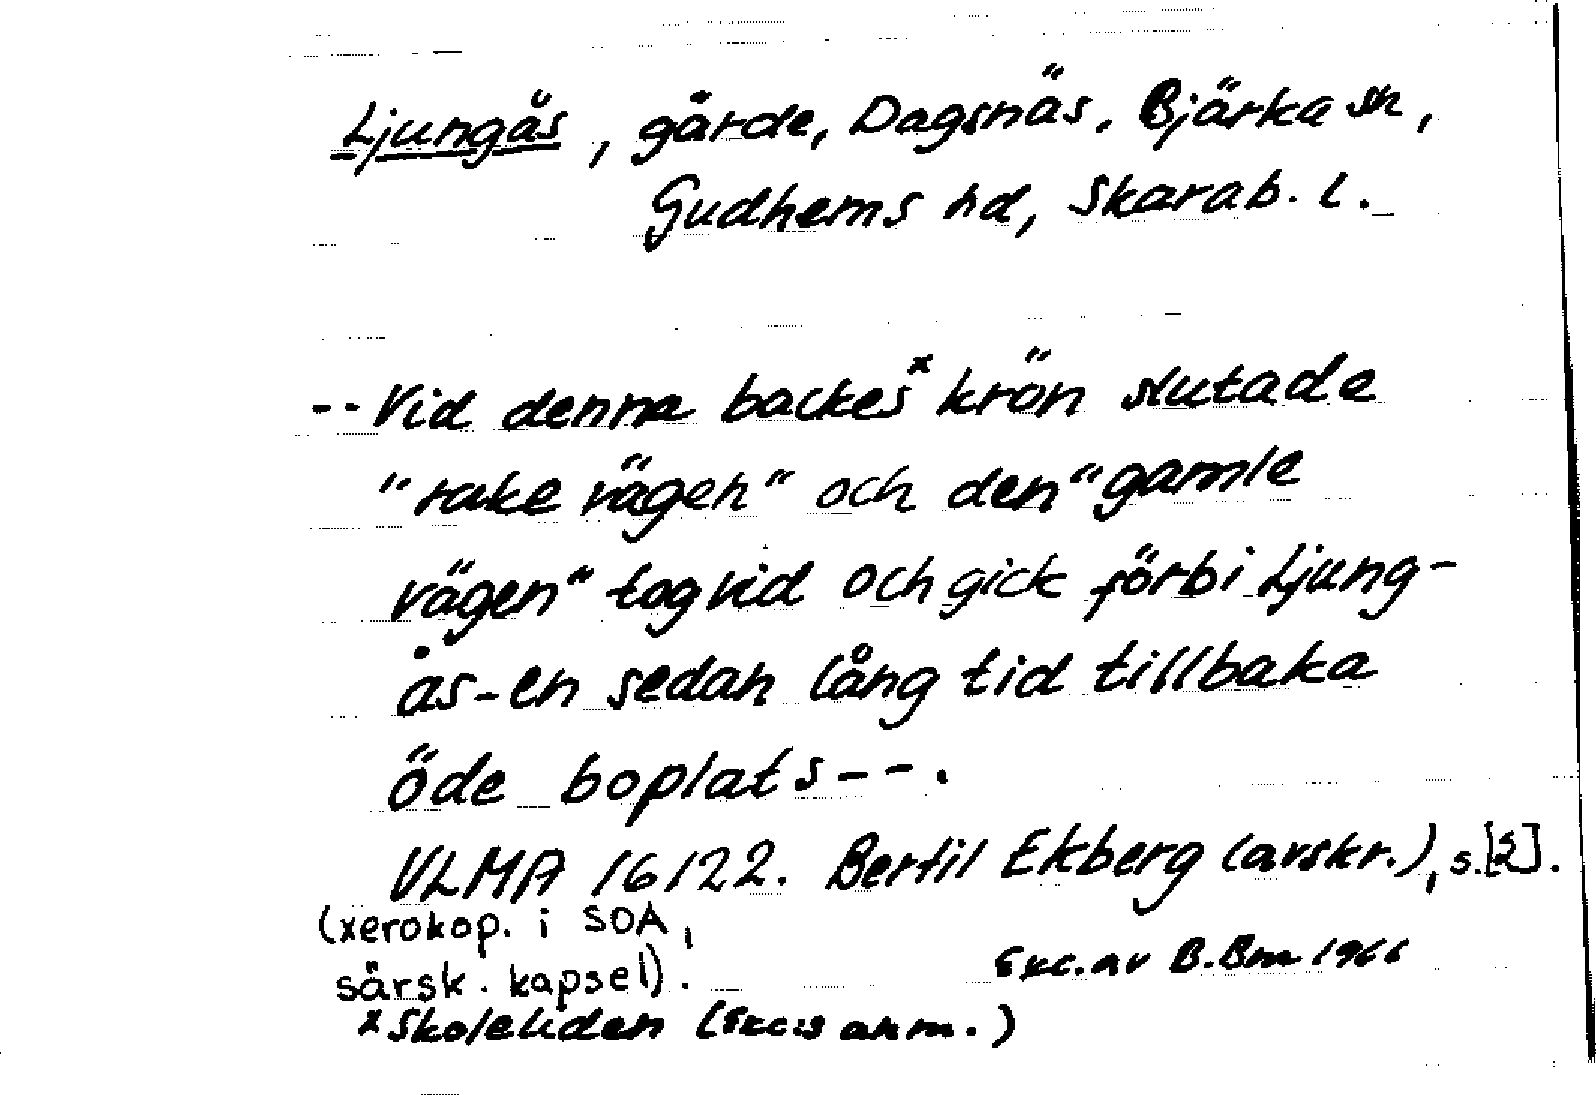 Ljungås, gärde, Dagsnäs, Bjärka sn,
Gudhems hd, Skarab. l.
-- Vid denna backes x krön slutade
"rake vägen" och den "gamle
vägen" tog vid och gick förbi Ljung-
ås - en sedan lång tid tillbaka
öde boplats --.
VLMA 16122. Bertil Ekberg (avskr.), s. [2].
(xerokop. i SOA,
särsk. kapsel).
Exc. av B. Bm 1966
x Skoleliden (Exc:s anm.)